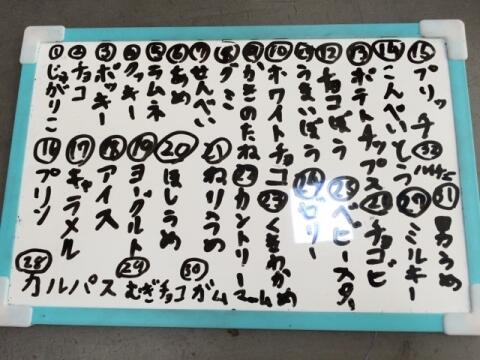 ①じゃがりこ
②チョコ
③ポッキー
④クッキー
⑤ラムネ
⑥あめ
⑦せんべい
⑧グミ
⑨かきのたね
⑩ホワイトチョコ
⑪うまいぼう
⑫チョコぼう
⑬ポテトチップス
⑭こんぺいとう
⑮プリッツ
⑯プリン
⑰キャラメル
⑱アイス
⑲ヨーグルト
⑳ほしうめ
㉑ねりうめ
㉒カントリーマーム
㉓くきわかめ
㉔ゼリー
㉕ベビースター
㉖チョコビ
㉗ミルキー
㉘カルパス
㉙むぎチョコ
㉚ガム
㉛男うめ
㉜